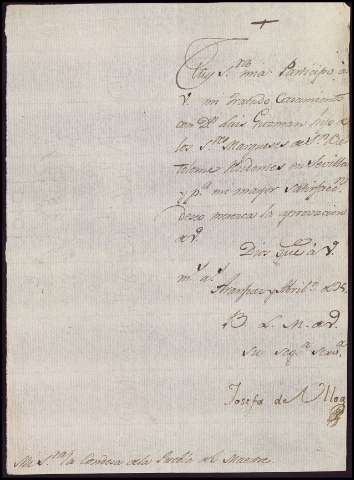 +
Muy S.ra mia Participo à
V. mi tratado Casamiento
con Dn. Luis Guzman hijo de
los S.res Marqueses de S.n Bar
tolome Residentes en Sevilla
y p.a mi mayor Satisfac.n
deseo merezca la aprovacion
de V.
Dios gue à V.
m.s a.s
Aranjuez y Abril
B. L. M. de V.
su seg.a serv.a
Josefa de Ulloa
Mi S.ra la Condesa de la Puebla del Maestre